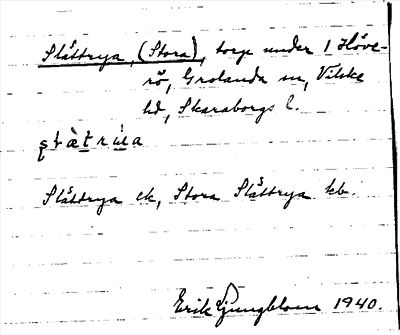 Slättrya, (Stora), torp under 1 Höve-
rö, Grolanda sn, Vilske
hd, Skaraborgs l.
Slättrya ek, Stora Slättrya kb.
Erik Ljungblom 1940.